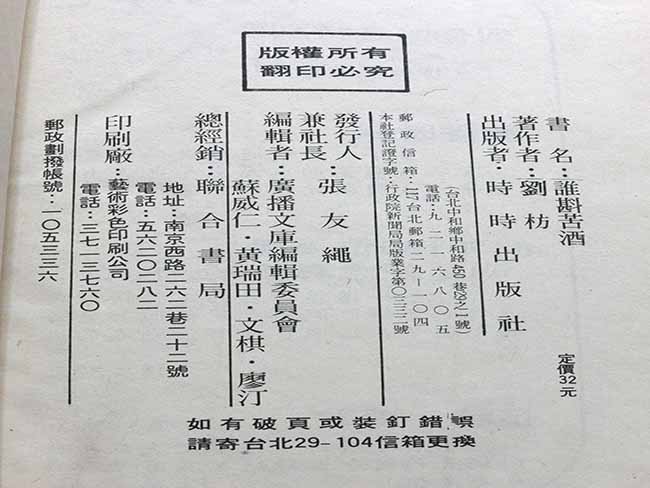 版權所有
翻印必究
書名：誰斟苦酒
著作者：劉枋
出版者：時時出版社
(台北中和鄉中和路460巷29之1號)
電話：九二一六八〇五
郵政信箱：117台北郵箱二九－一〇四
本社登記證字號：行政院新聞局局版業字第〇三三二號
發行人
兼社長：張友繩
編輯者：廣播文庫編輯委員會
蘇威仁・黃瑞田・文棋・廖汀
總經銷：聯合書局
地址：南京西路二六二巷二十二號
電話：五六二〇二八二
印刷廠：藝術彩色印刷公司
電話：三七一三七六〇
郵政劃撥帳號：一〇五三三六
定價32元
如有破頁或裝釘錯誤
請寄台北29-104信箱更換